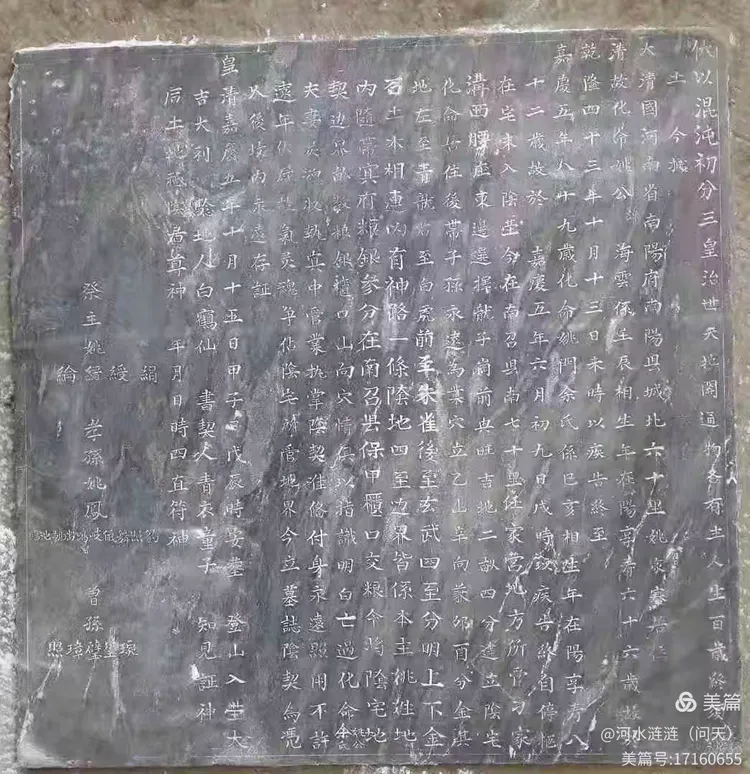 伏以混沌初分三皇治世天地開通物各有主人生百歲終須
土今據
大清國河南省南陽府南陽县城北六十里姚家寨居住
清故化命姚公海雲係壬辰相生年在陽享壽六十六歲故於
乾隆四十三年十月十三日未時以疾告終至
嘉慶五年八十九歲化命姚門余氏係巳亥相生年在陽享壽八
十二歲故於嘉慶五年六月初九日戌時致疾告終自停柩
在宅未入陰塋今在南召县南七十里任家營地方所管刁家
溝西腰庄東邊選擇獻子崗前興旺吉地二畝四分建立陰宅
化命居住後帶子孫永遠為業穴立乙山辛向兼卯酉分金淇
地左至青龍右至白虎前至朱雀後至玄武四至分明上下金
石土木相連內有神路一條陰地四至边界皆係本主姚姓地
內隨帶冥府糧銀參分在南召县保甲櫃口交粮今將陰宅地
契边界畝數粮銀龍口山向穴情無以指識明白亡過化命
夫妻灵泃收執冥中管業執掌陰契准俻付身永遠照用不許
遠年伏屍氣灵魂爭佔陰宅所管地界今立墓誌陰契為憑
以後坟內永遠存証
皇清嘉慶五年十月十五日甲子日戊辰時安塟登山入塋大
吉大利驗地人白鶴仙書契人青衣童子知見証神
后土地祇陰君尊神年月日時四直符神
祭主姚縉綬綸絹
孝孫姚鳳
曾孫
照璋璧星琛
美篇
@河水涟涟（问天）
美篇号:17160655